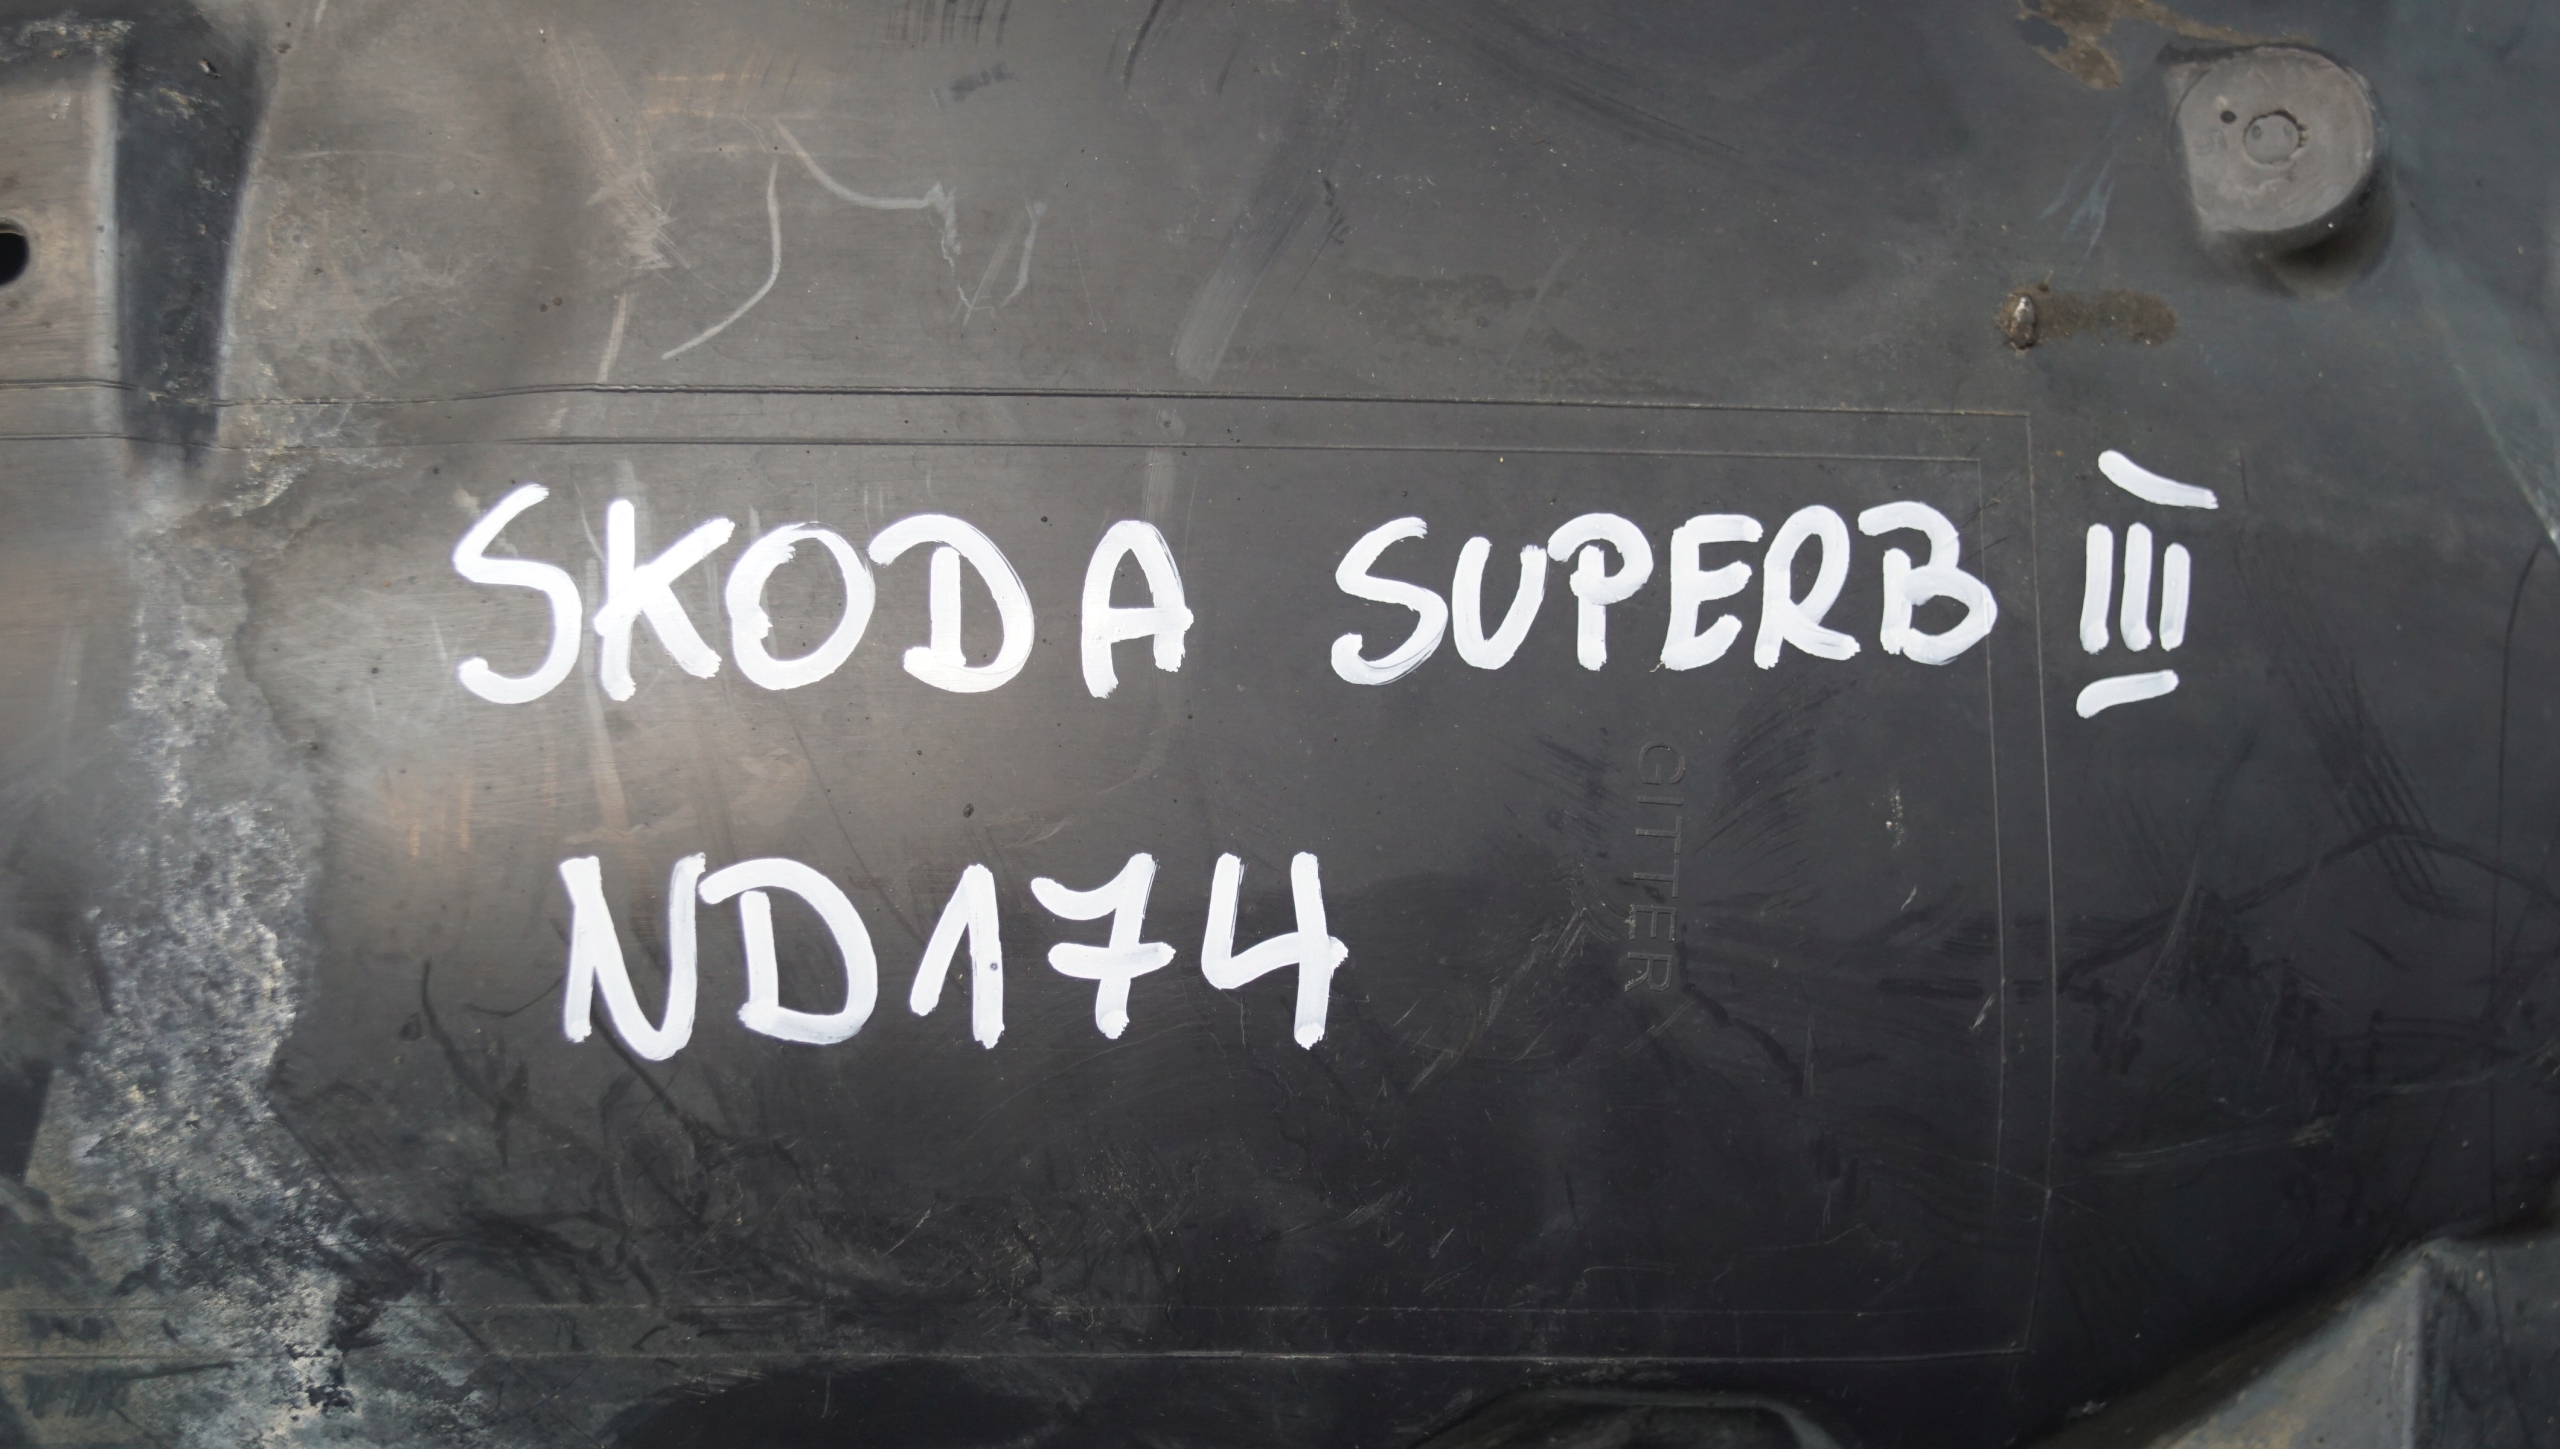 SKODA SUPERB III
ND174
GITTER